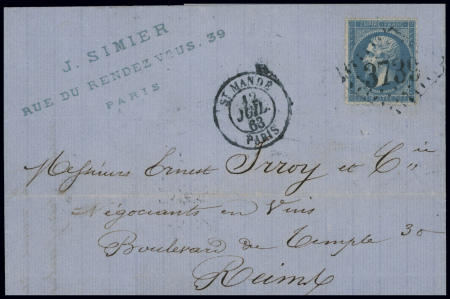 J. SIMIER
RUE DU RENDEZ VOUS. 39
PARIS
EMPIRE FRANC
3738
ST MANDÉ
12
JUIL.
63
PARIS
Messieurs Ernest Irroy et Cie
Négociants en Vins
Boulevard du Temple 30
Reims